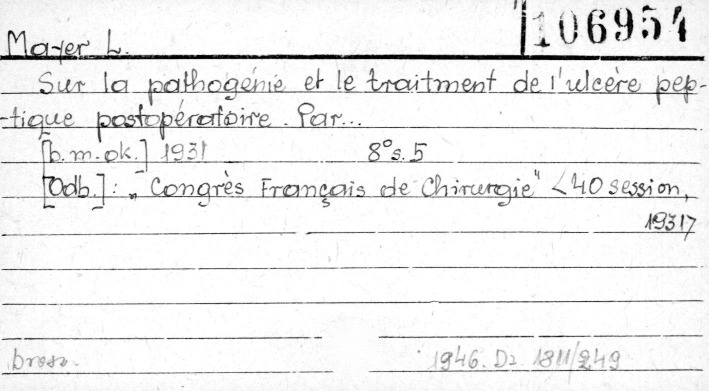 106954
Mayer L.
Sur la pathogénie et le traitment de l'ulcère pep-
-tique postopératoire. Par...
[b.m.ok.] 1931 8°s.5
[Odb.]: „Congrès Français de Chirurgie" <40 session,
1931>
brosz. 1946. Dz. 1811/249